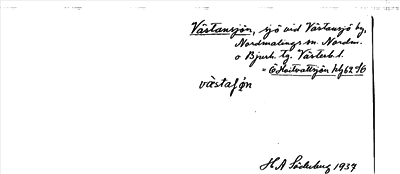 Västansjön, sjö vid Västansjö by,
Nordmalings sn. Nordm.
o Bjurh. tg. Västerb. l.
västasjøn
H A Söderberg 1937